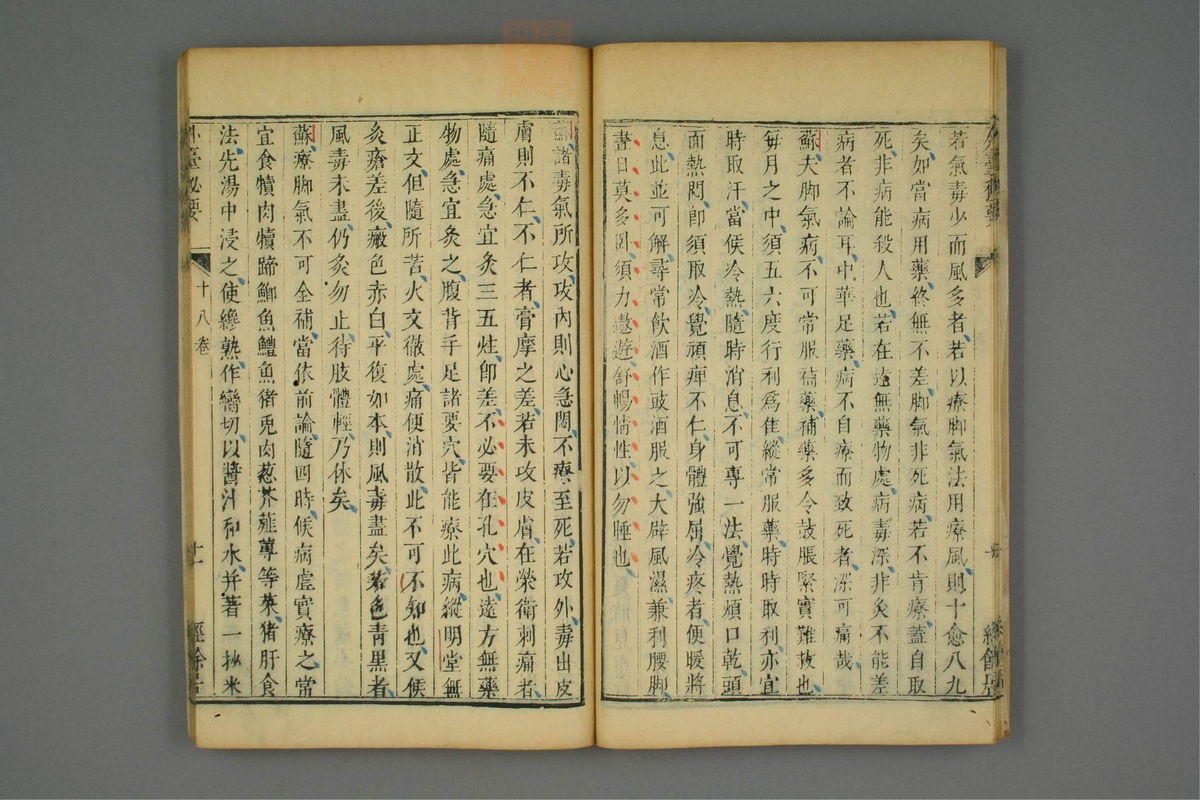 若氣毒少而風多者若以療脚氣法用療風則十愈八九
矣如當病用藥終無不差脚氣非死病若不肯療蓋自取
死非病能殺人也若在遠無藥物處病毒深非灸不能差
病者不論耳中華足藥病不自療而致死者深可痛哉
蘇夫脚氣病不可常服補藥補藥多令鼓脹緊實難救也
每月之中須五六度行利爲佳縱常服藥時時取利亦宜
時取汗當候冷熱隨時消息不可專一法覺熱煩口乾頭
面熱悶卽須取冷覺頑痺不仁身體強屈冷疼者便暖將
息此並可解尋常飲酒作豉酒服之大辟風濕兼利腰脚
晝日莫多臥須力遨遊舒暢情性以勿睡也
蘇諸毒氣所攻攻內則心急悶不療至死若攻外毒出皮
膚則不仁不仁者膏摩之差若未攻皮膚在榮衛刺痛者
隨痛處急宜灸三五炷卽差不必要在孔穴也遠方無藥
物處急宜灸之腹背手足諸要穴皆能療此病縱明堂無
正文但隨所苦火艾徹處痛便消散此不可不知也又候
灸瘡差後瘢色赤白平復如本則風毒盡矣若色靑黑者
風毒未盡仍灸勿止待肢體輕乃休矣
蘇療脚氣不可全補當依前論隨四時候病虛實療之當
宜食犢肉犢蹄鯽魚鱧魚猪兎肉葱芥薤蓴等菜猪肝食
法先湯中浸之使纔熟作臠切以醬汁和水并著一抄米
外臺秘要 十八卷 十一 經餘居